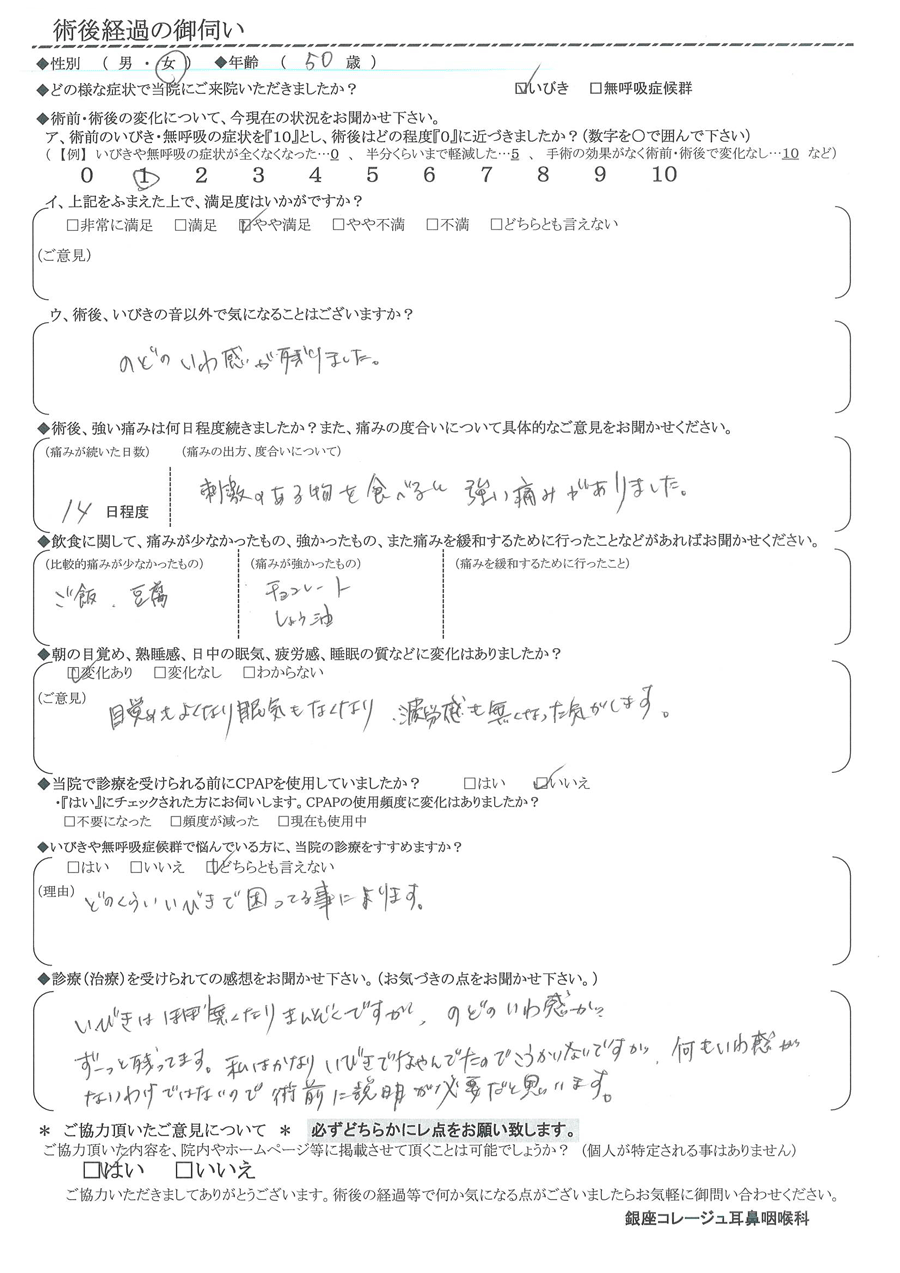 術後経過の御伺い
◆性別 ( 男 ・ 女 ) ◆年齢 ( 50 歳 )
◆どの様な症状で当院にご来院いただきましたか? ☑いびき □無呼吸症候群
◆術前・術後の変化について、今現在の状況をお聞かせ下さい。
ア、術前のいびき・無呼吸の症状を『10』とし、術後はどの程度『0』に近づきましたか?(数字を〇で囲んで下さい)
(【例】 いびきや無呼吸の症状が全くなくなった…0 、 半分くらいまで軽減した…5 、 手術の効果がなく術前・術後で変化なし…10 など)
0 1 2 3 4 5 6 7 8 9 10
イ、上記をふまえた上で、満足度はいかがですか?
□非常に満足 □満足 ☑やや満足 □やや不満 □不満 □どちらとも言えない
(ご意見)
ウ、術後、いびきの音以外で気になることはございますか?
のどのいわ感が残りました。
◆術後、強い痛みは何日程度続きましたか?また、痛みの度合いについて具体的なご意見をお聞かせください。
(痛みが続いた日数) (痛みの出方、度合いについて)
14 日程度 刺激のある物を食べると強い痛みがありました。
◆飲食に関して、痛みが少なかったもの、強かったもの、また痛みを緩和するために行ったことなどがあればお聞かせください。
(比較的痛みが少なかったもの) (痛みが強かったもの) (痛みを緩和するために行ったこと)
ご飯、豆腐 チョコレート
しょう油
◆朝の目覚め、熟睡感、日中の眠気、疲労感、睡眠の質などに変化はありましたか?
☑変化あり □変化なし □わからない
(ご意見)
目覚めもよくなり眠気もなくなり、疲労感も無くなった気がします。
◆当院で診療を受けられる前にCPAPを使用していましたか? □はい ☑いいえ
・『はい』にチェックされた方にお伺いします。CPAPの使用頻度に変化はありましたか?
□不要になった □頻度が減った □現在も使用中
◆いびきや無呼吸症候群で悩んでいる方に、当院の診療をすすめますか?
□はい □いいえ ☑どちらとも言えない
(理由)
どのくらいいびきで困ってる事によります。
◆診療(治療)を受けられての感想をお聞かせ下さい。(お気づきの点をお聞かせ下さい。)
いびきはほぼ無くなりまんぞくですが、のどのいわ感が
ずーっと残ってます。私はかなりいびきでなやんでたのでこうかいないですが、何もいわ感が
ないわけではないので術前に説明が必要だと思います。
＊ ご協力頂いたご意見について ＊ 必ずどちらかにレ点をお願い致します。
ご協力頂いた内容を、院内やホームページ等に掲載させて頂くことは可能でしょうか? (個人が特定される事はありません)
☑はい □いいえ
ご協力いただきましてありがとうございます。術後の経過等で何か気になる点がございましたらお気軽に御問い合わせください。
銀座コレージュ耳鼻咽喉科